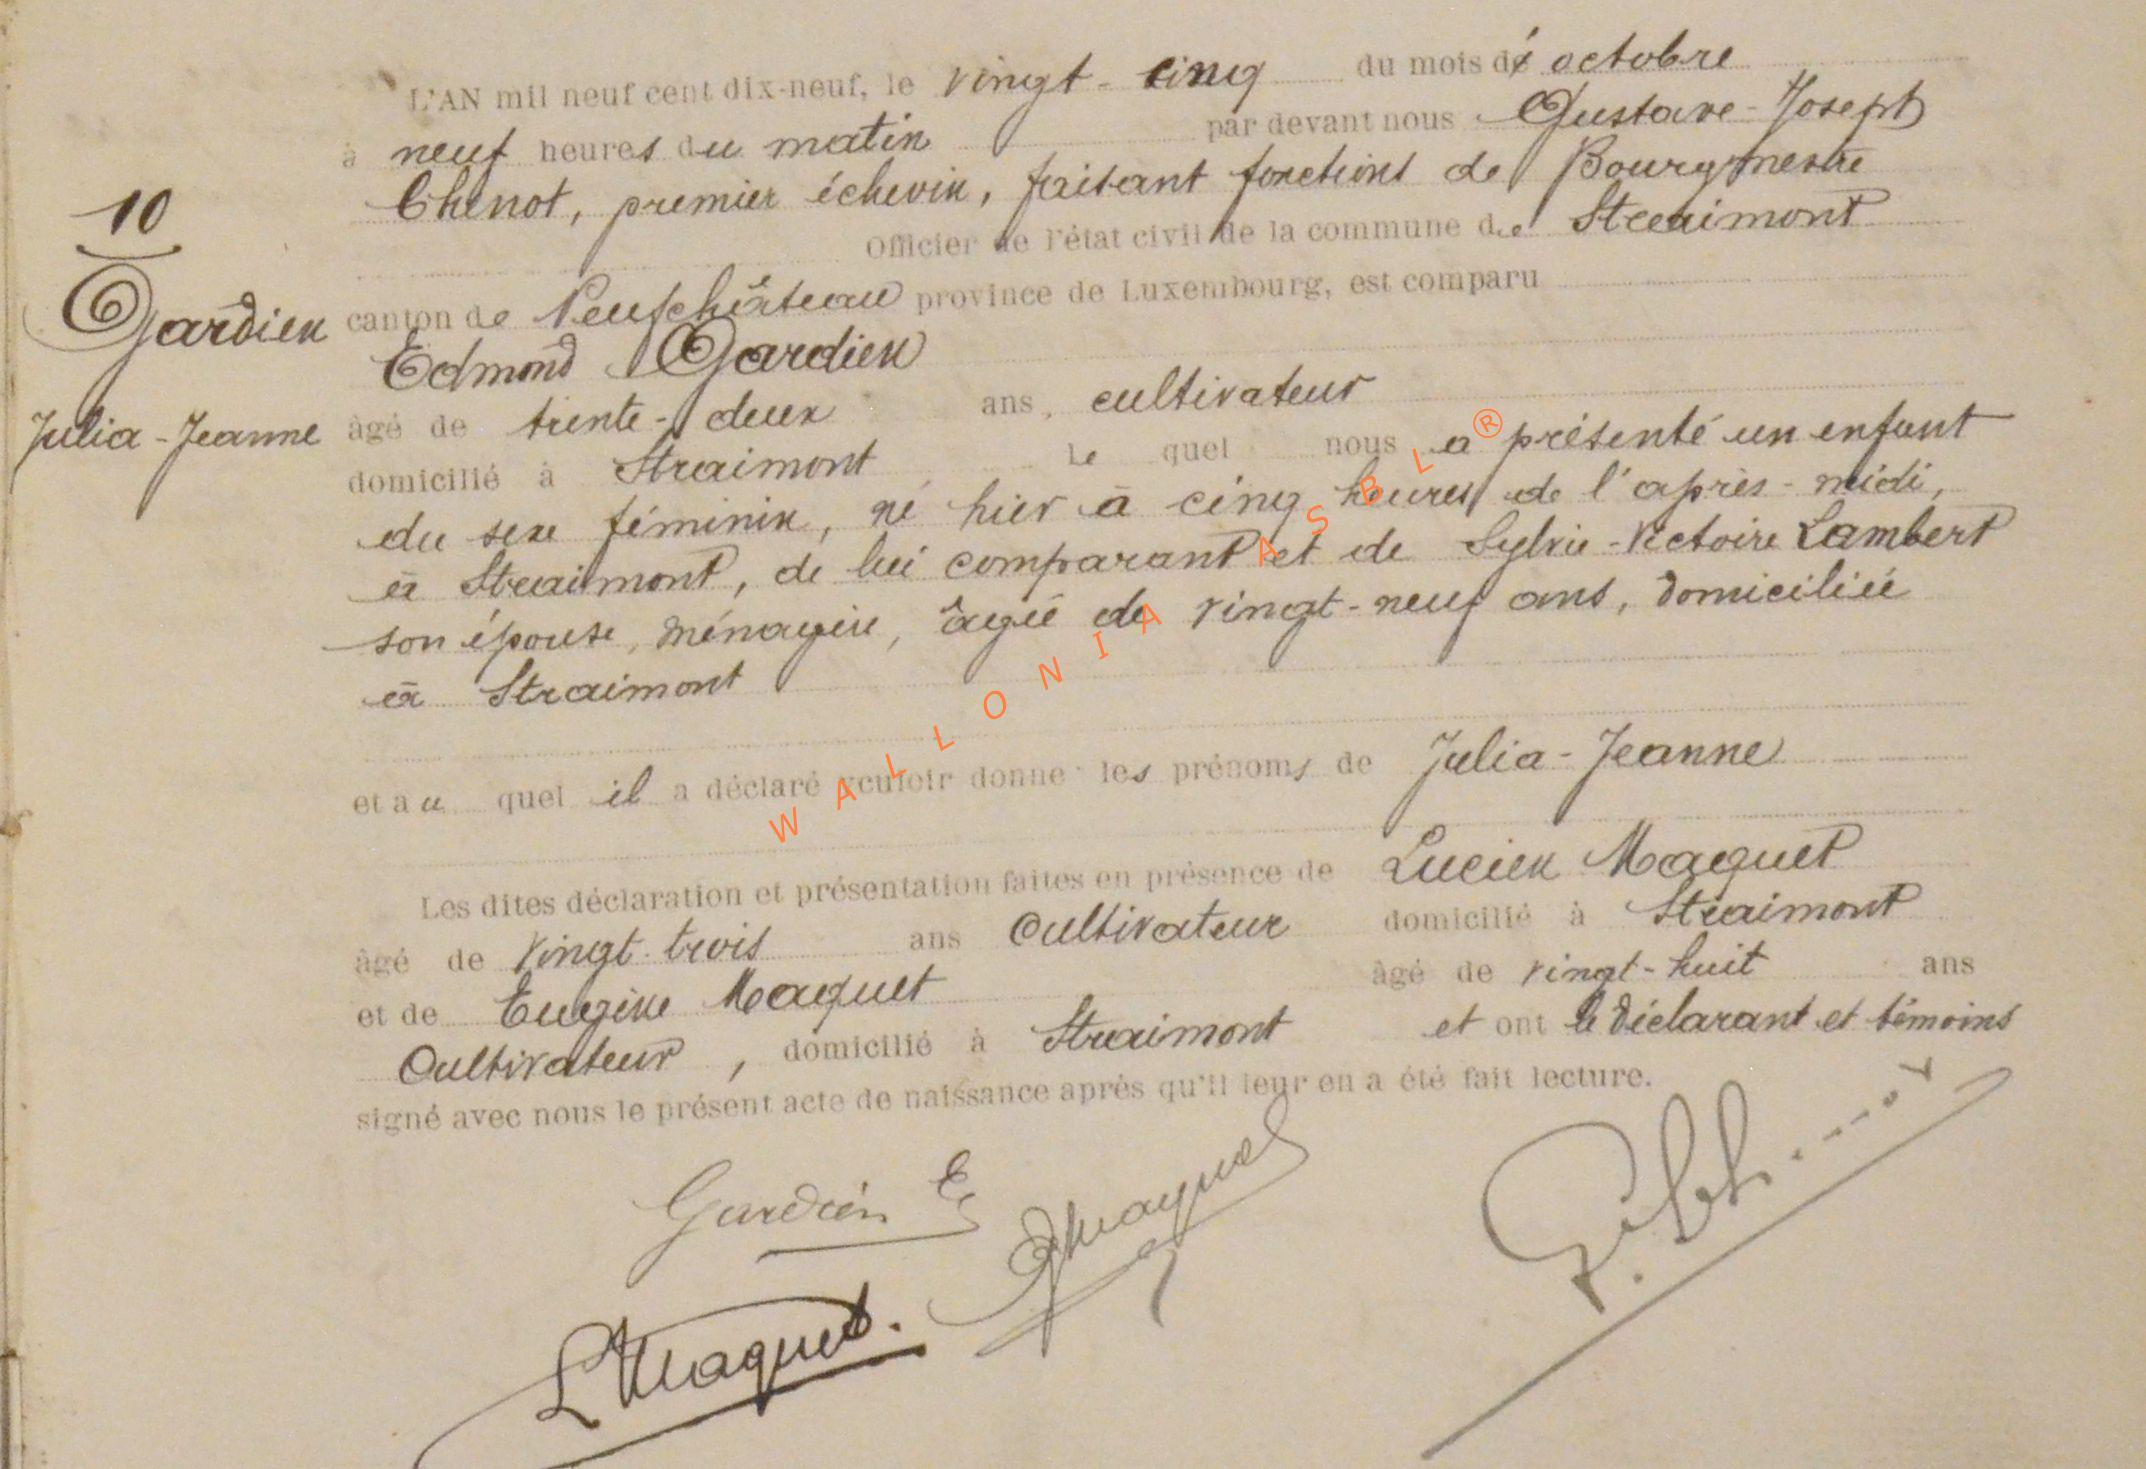 10
Gardien
Julia-Jeanne
L'AN mil neuf cent dix-neuf, le vingt-cinq du mois d'octobre
à neuf heures du matin par devant nous Gustave-Joseph
Chenot, premier échevin, faisant fonctions de Bourgmestre
Officier de l'état civil de la commune de Straimont
canton de Neufchâteau province de Luxembourg, est comparu
Edmond Gardien
âgé de trente-deux ans, cultivateur
domicilié à Straimont le quel nous a présenté un enfant
du sexe féminin, né hier à cinq heures de l'après-midi,
à Straimont, de lui comparant et de Sylvie-Victoire Lambert
son épouse, ménagère, âgée de vingt-neuf ans, domiciliée
à Straimont
et au quel il a déclaré vouloir donner les prénoms de Julia-Jeanne
Les dites déclaration et présentation faites en présence de Lucien Maquet
âgé de vingt-trois ans Cultivateur domicilié à Straimont
et de Eugène Maquet âgé de vingt-huit ans
Cultivateur, domicilié à Straimont et ont le déclarant et témoins
signé avec nous le présent acte de naissance après qu'il leur en a été fait lecture.
Gardien E
E Maquet
L Maquet.
WALLONIA ASBL ®